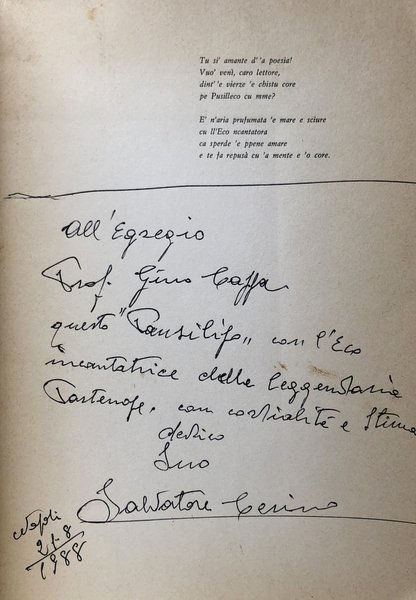 Tu si' amante d' 'a poesia!
Vuo' venì, caro lettore,
dint' 'e vierze 'e chistu core
pe Pusilleco cu mme?
E' n'aria prufumata 'e mare e sciure
cu ll'Eco ncantatora
ca sperde 'e ppene amare
e te fa repusà cu 'a mente e 'o core.
All'Egregio
Prof. Gino Caffa
questo "Pausilifo" con l'Eco
incantatrice della leggendaria
Partenope, con cordialità e Stima
dedico
Suo
Salvatore Cerino
Napoli
21-8
1988